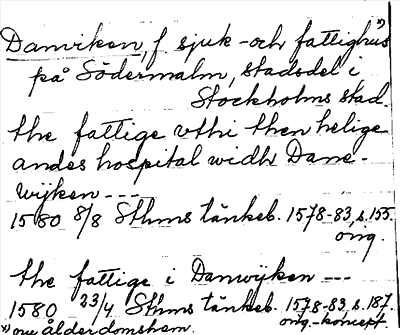 Danviken, f. sjuk- och fattighus *)
på Södermalm, stadsdel i
Stockholms stad.
the fattige vthi then helige
andes hospital widh Dane-
wijken ---
1580 8/8 Sthms tänkeb. 1578-83, s. 155.
orig.
the fattige i Danwijken ---
1580 23/4 Sthms tänkeb. 1578-83, s. 187.
orig.-koncept.
*) nu ålderdomshem.